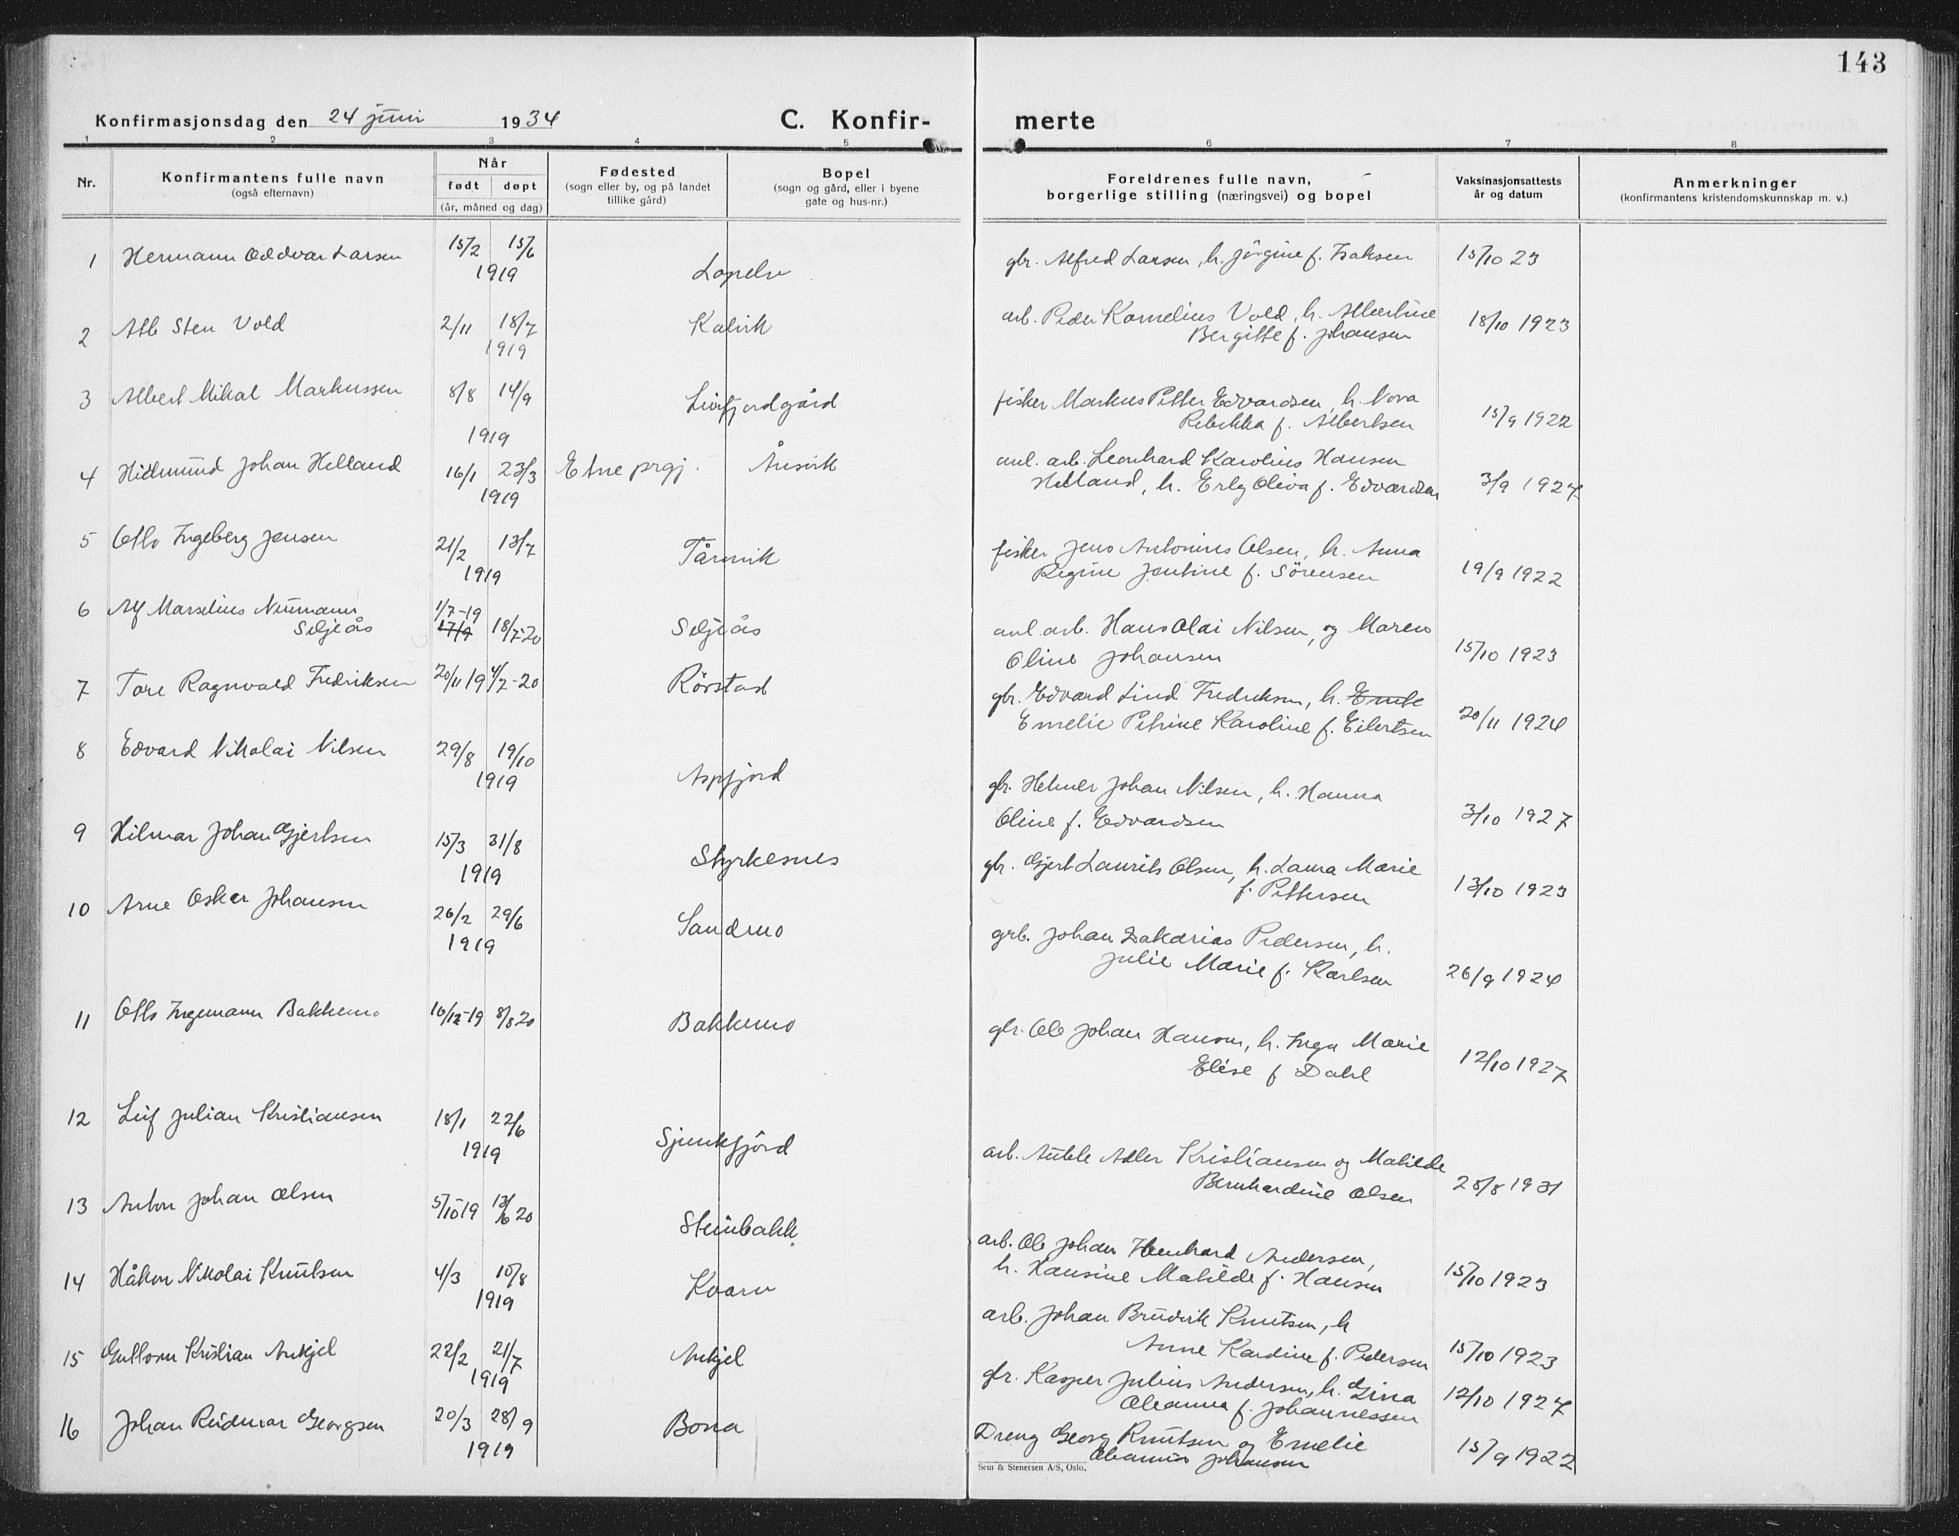 143
Konfirmasjonsdag den 24 juni 1934 C. Konfir- merte
1 2 3 4 5 6 7 8
Nr. Konfirmantens fulle navn (også efternavn) Når født døpt (år, måned og dag) Fødested (sogn eller by, og på landet tillike gård) Bopel (sogn og gård, eller i byene gate og hus-nr.) Foreldrenes fulle navn, borgerlige stilling (næringsvei) og bopel Vaksinasjonsattests år og datum Anmerkninger (konfirmantens kristendomskunnskap m. v.)
1 Hermann Oddvar Larsen 15/2 15/6 1919 gbr. Alfred Larsen, h. Jørgine f. Isaksen 15/10 23
2 Alb Sten Vold 2/11 18/7 1919 Kalvik arb. Peder Kornelius Vold, h. Albertine
Bergitte f. Johansen 18/10 1923
3 Albert Mikal Markussen 8/8 14/9 1919 Leirfjordgård fisker Markus Petter Edvardsen, h. Nora
Rebekka f. Albertsen 15/9 1922
4 Hidmund Johan Helland 16/1 23/3 1919 Etne prgj. Åsvik anl. arb. Leonhard Karolius Hansen
Helland, h. Erly Oliva f. Edvardsen 3/9 1924
5 Otto Ingeberg Jensen 21/2 13/7 1919 Tårnvik fisker Jens Antonius Olsen, h. Anna
Regine Jentine f. Sørensen 19/9 1922
6 Alf Marselius Numann
Seljeås 1/7-19 17/9 18/7-20 Seljeås anl. arb. Hans Olai Nilsen, og Maren
Oline Johansen 15/10 1923
7 Tore Ragnvald Fredriksen 20/11 19 4/7-20 Rörstad gbr. Edvard Lind Fredriksen, h.
Emelie Petrine Karoline f. Eilertsen 20/11 1924
8 Edvard Nikolai Nilsen 29/8 19/10 1919 Aspfjord gbr. Helmer Johan Nilsen, h. Hanna
Oline f. Edvardsen 3/10 1927
9 Hilmar Johan Gjertsen 15/3 31/8 1919 Styrkesnes gbr. Gjert Laurits Olsen, h. Laura Marie
f. Pettersen 13/10 1923
10 Arne Oskar Johansen 26/2 29/6 1919 Sandmo grb. Johan Zakarias Pedersen, h.
Julie Marie f. Karlsen 26/9 1924
11 Otto Ingemann Bakkemo 16/12-19 8/8 20 Bakkemo gbr. Ole Johan Hanson, h. Inga Marie
Elise f Dahl 12/10 1927
12 Leif Julian Kristiansen 18/1 22/6 1919 Sjunkfjörd arb. Adler Kristiansen og Matilde
Bernhardine Olsen 28/8 1931
13 Anton Johan Olsen 5/10 19 13/6 20 Steinbakk arb. Ole Johan Henhard Andersen,
h. Hansine Matilde f. Hansen 15/10 1923
14 Håkon Nikolai Knutsen 4/3 10/8 1919 Kvarv arb. Johan Brudvik Knutsen, h
Anne Kardine f. Pedersen 15/10 1923
15 Guttorm Kristian Ankjel 22/2 21/7 1919 Ankjel gbr. Kasper Julius Andersen, h. Gina
Oleanna f. Johannessen 12/10 1924
16 Johan Reidmar Georgsen 20/3 28/9 1919 Bona Dreng Georg Knutsen og Emelie
Oleanna Johansen 15/9 1922
Sem & Stenersen A/S, Oslo.